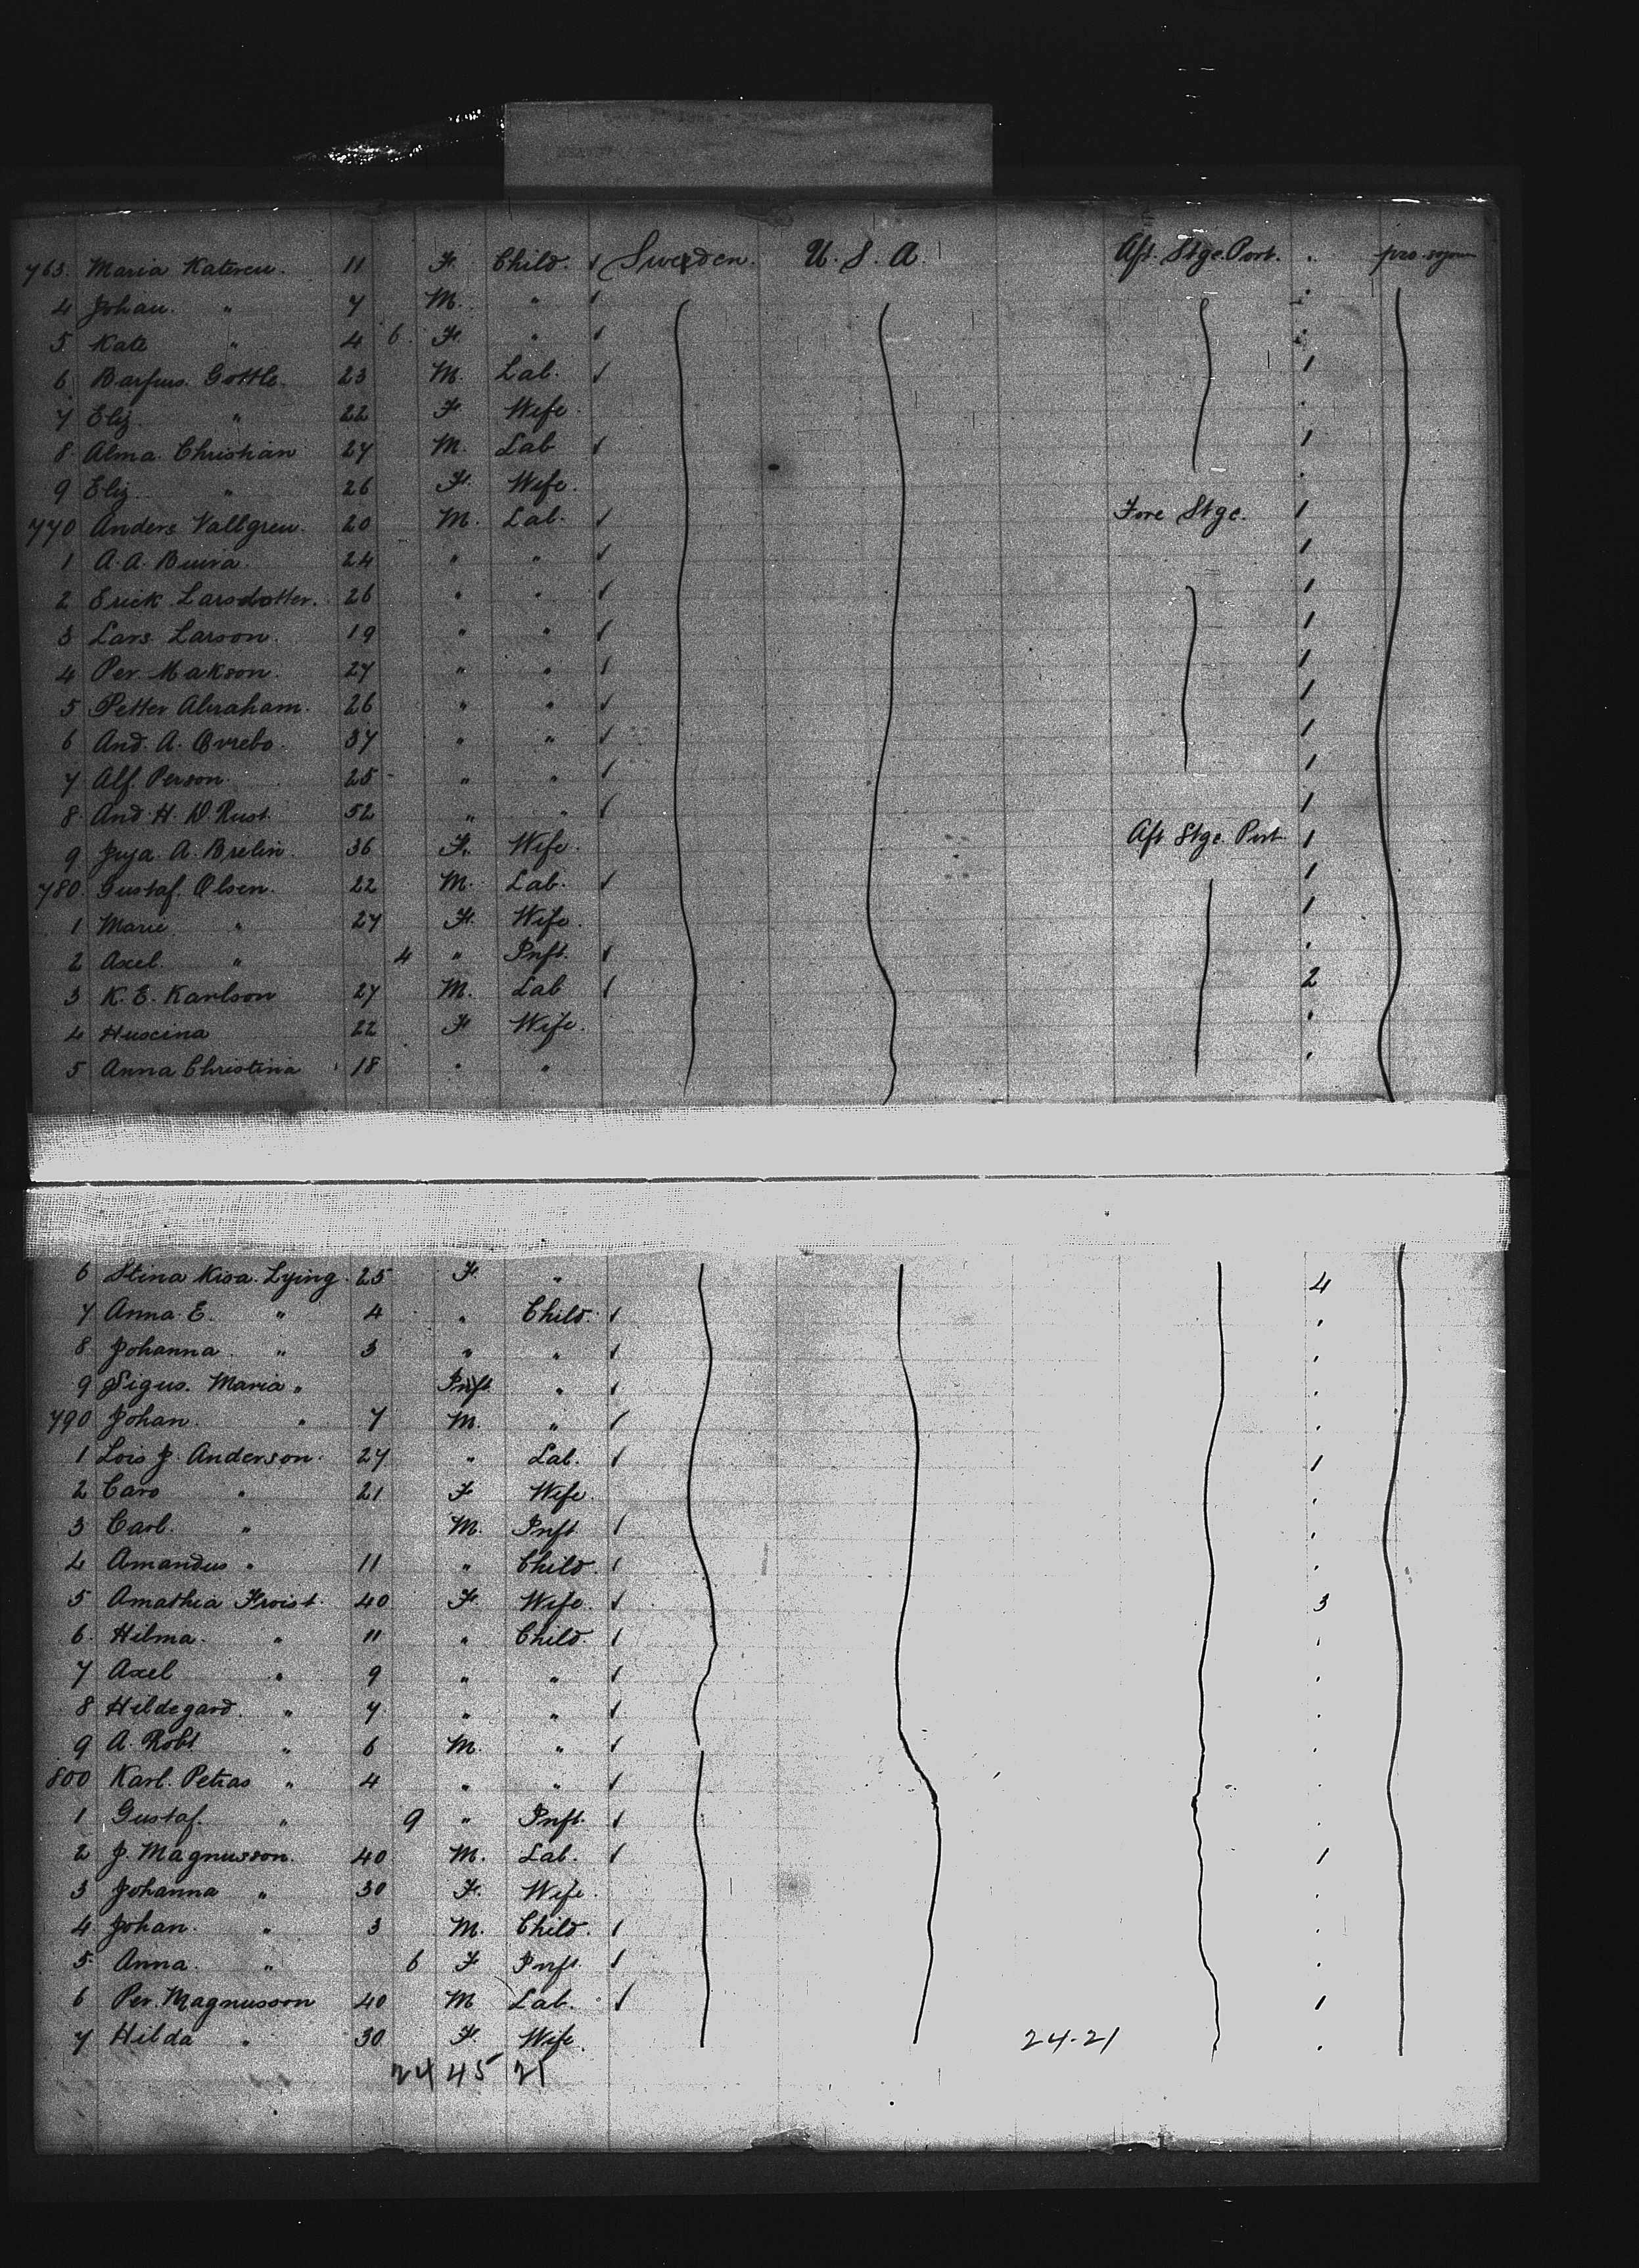 763. Maria Kateren. 11 F. Child. ✓ Sweden. U. S. A. Aft. Stge. Port. . pro. sojourn
4 Johan. " 7 M. " ✓
5 Kate " 4 6. F. " ✓
6 Barfus. Gottle. 23 M. Lab. ✓ 1
7 Eliz. " 22 F. Wife.
8. Alma. Christian 27 M. Lab ✓ 1
9 Eliz. " 26 F. Wife.
770 Anders Vallgren. 20 M. Lab. ✓ Fore Stge. 1
1 A. A. 24 " " ✓ 1
2 Erick Larsdotter. 26 " " ✓ 1
3 Lars. Larson. 19 " " ✓ 1
4 Per. Makson. 27 " " ✓ 1
5 Petter Abraham. 26 " " ✓ 1
6 And. A. Ovrebo. 37 " " ✓ 1
7 Alf. Person. 25 " " ✓ 1
8. And. H. D. Rust. 52 " " ✓ 1
9 A. Brelin. 36 F. Wife. Aft Stge. Port 1
780. Gustaf. Olsen. 22 M. Lab. ✓ 1
1 Marie " 27 F. Wife. 1
2 Axel. " 4 " Inft. ✓
3 K. E. Karlson 27 M. Lab ✓ 2
4 Huscina 22 F Wife.
5 Anna Christina 18 " "
6 Stina Kisa. Lying. 25 F. " 4
7 Anna E. " 4 " Child. ✓
8 Johanna. " 3 " " ✓
9 Sigus. Maria " Inft " ✓
790 Johan. " 7 M. " ✓
1 Lois J. Anderson. 27 " Lab. ✓ 1
2 Caro " 21 F Wife.
3 Carl. " M. Inft ✓
4 Amandus " 11 " Child. ✓
5 Amathia Froist. 40 F. Wife. ✓ 3
6. Hilma. " 11 " Child. ✓
7 Axel " 9 " " ✓
8 Hildegard. " 7. " " ✓
9 A. Robt " 6 M. " ✓
800 Karl. Petras " 4 " " ✓
1 Gustaf. " 9 " Inft. ✓
2 J. Magnusson. 40 M. Lab. ✓ 1
3 Johanna " 30 F. Wife.
4 Johan. " 3 M. Child. ✓
5. Anna. " 6 F Inft ✓
6 Per. Magnusson 40 M Lab. ✓ 1
7 Hilda " 30 F. Wife. 24-21
24 45 21